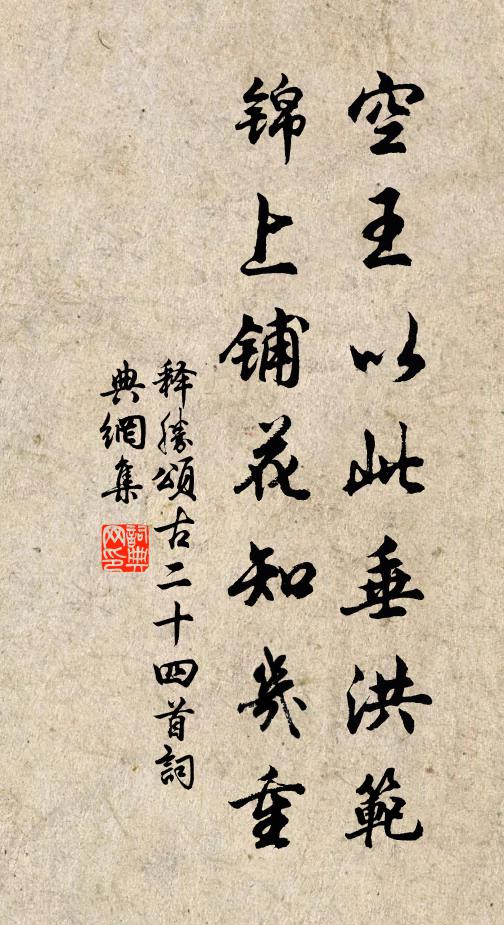 空王以此垂洪範
錦上鋪花知幾重
釋勝頌古二十四首詞
典網集
詞典
网印